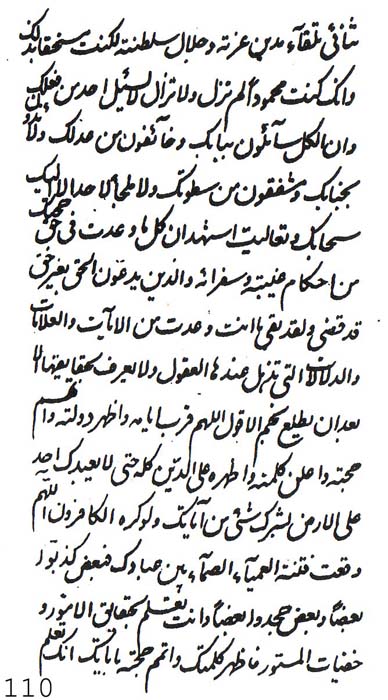 ثنائی تلقآء مدین عزته وجلال سلطنته لکنت مستحقا بذلک
وانک کنت محمودا لم تزل ولا تزال لا یسئل احد من فعلک
وان الکل سآئلون ببابک وخآئفون من عدلک
بجنابک ومشفقون من سطوتک ولا ملجأ لاحد الا الیک
سبحانک وتعالیت استشهد ان کل ما وعدت فی حق حجتک
من احکام غیبته وسفرائه والذین یدعون الحق بغیر حق
قد قضی ولقد بقی ما انت وعدت من الایات والعلامات
والدلالات التی تذهل عندها العقول ولا یعرف حقایقها الا
بعد ان یطلع نجم الاول اللهم قرب ایامه واظهر دولته وانهم
حجته واعلن کلمته واظهره علی الدین کله حتی لا یعبدک احد
علی الارض بشرک شئ من آیاتک ولو کره الکافرون اللهم
وقعت فتنة العمیآء الصمآء بین عبادک فبعض کذبوا
بعضا وبعض جحدوا بعضا وانت تعلم بحقایق الامور و
خفیات المستور فاظهر کلمتک واتمم حجته بایاتک انک تعلم
110